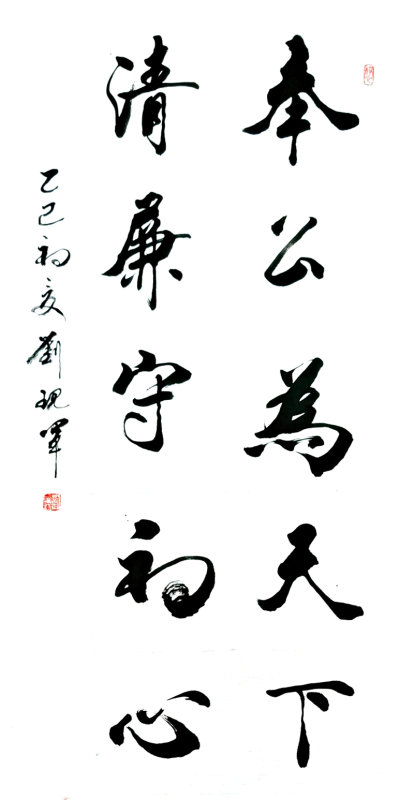 奉公為天下
清廉守初心
乙巳初夏劉現軍